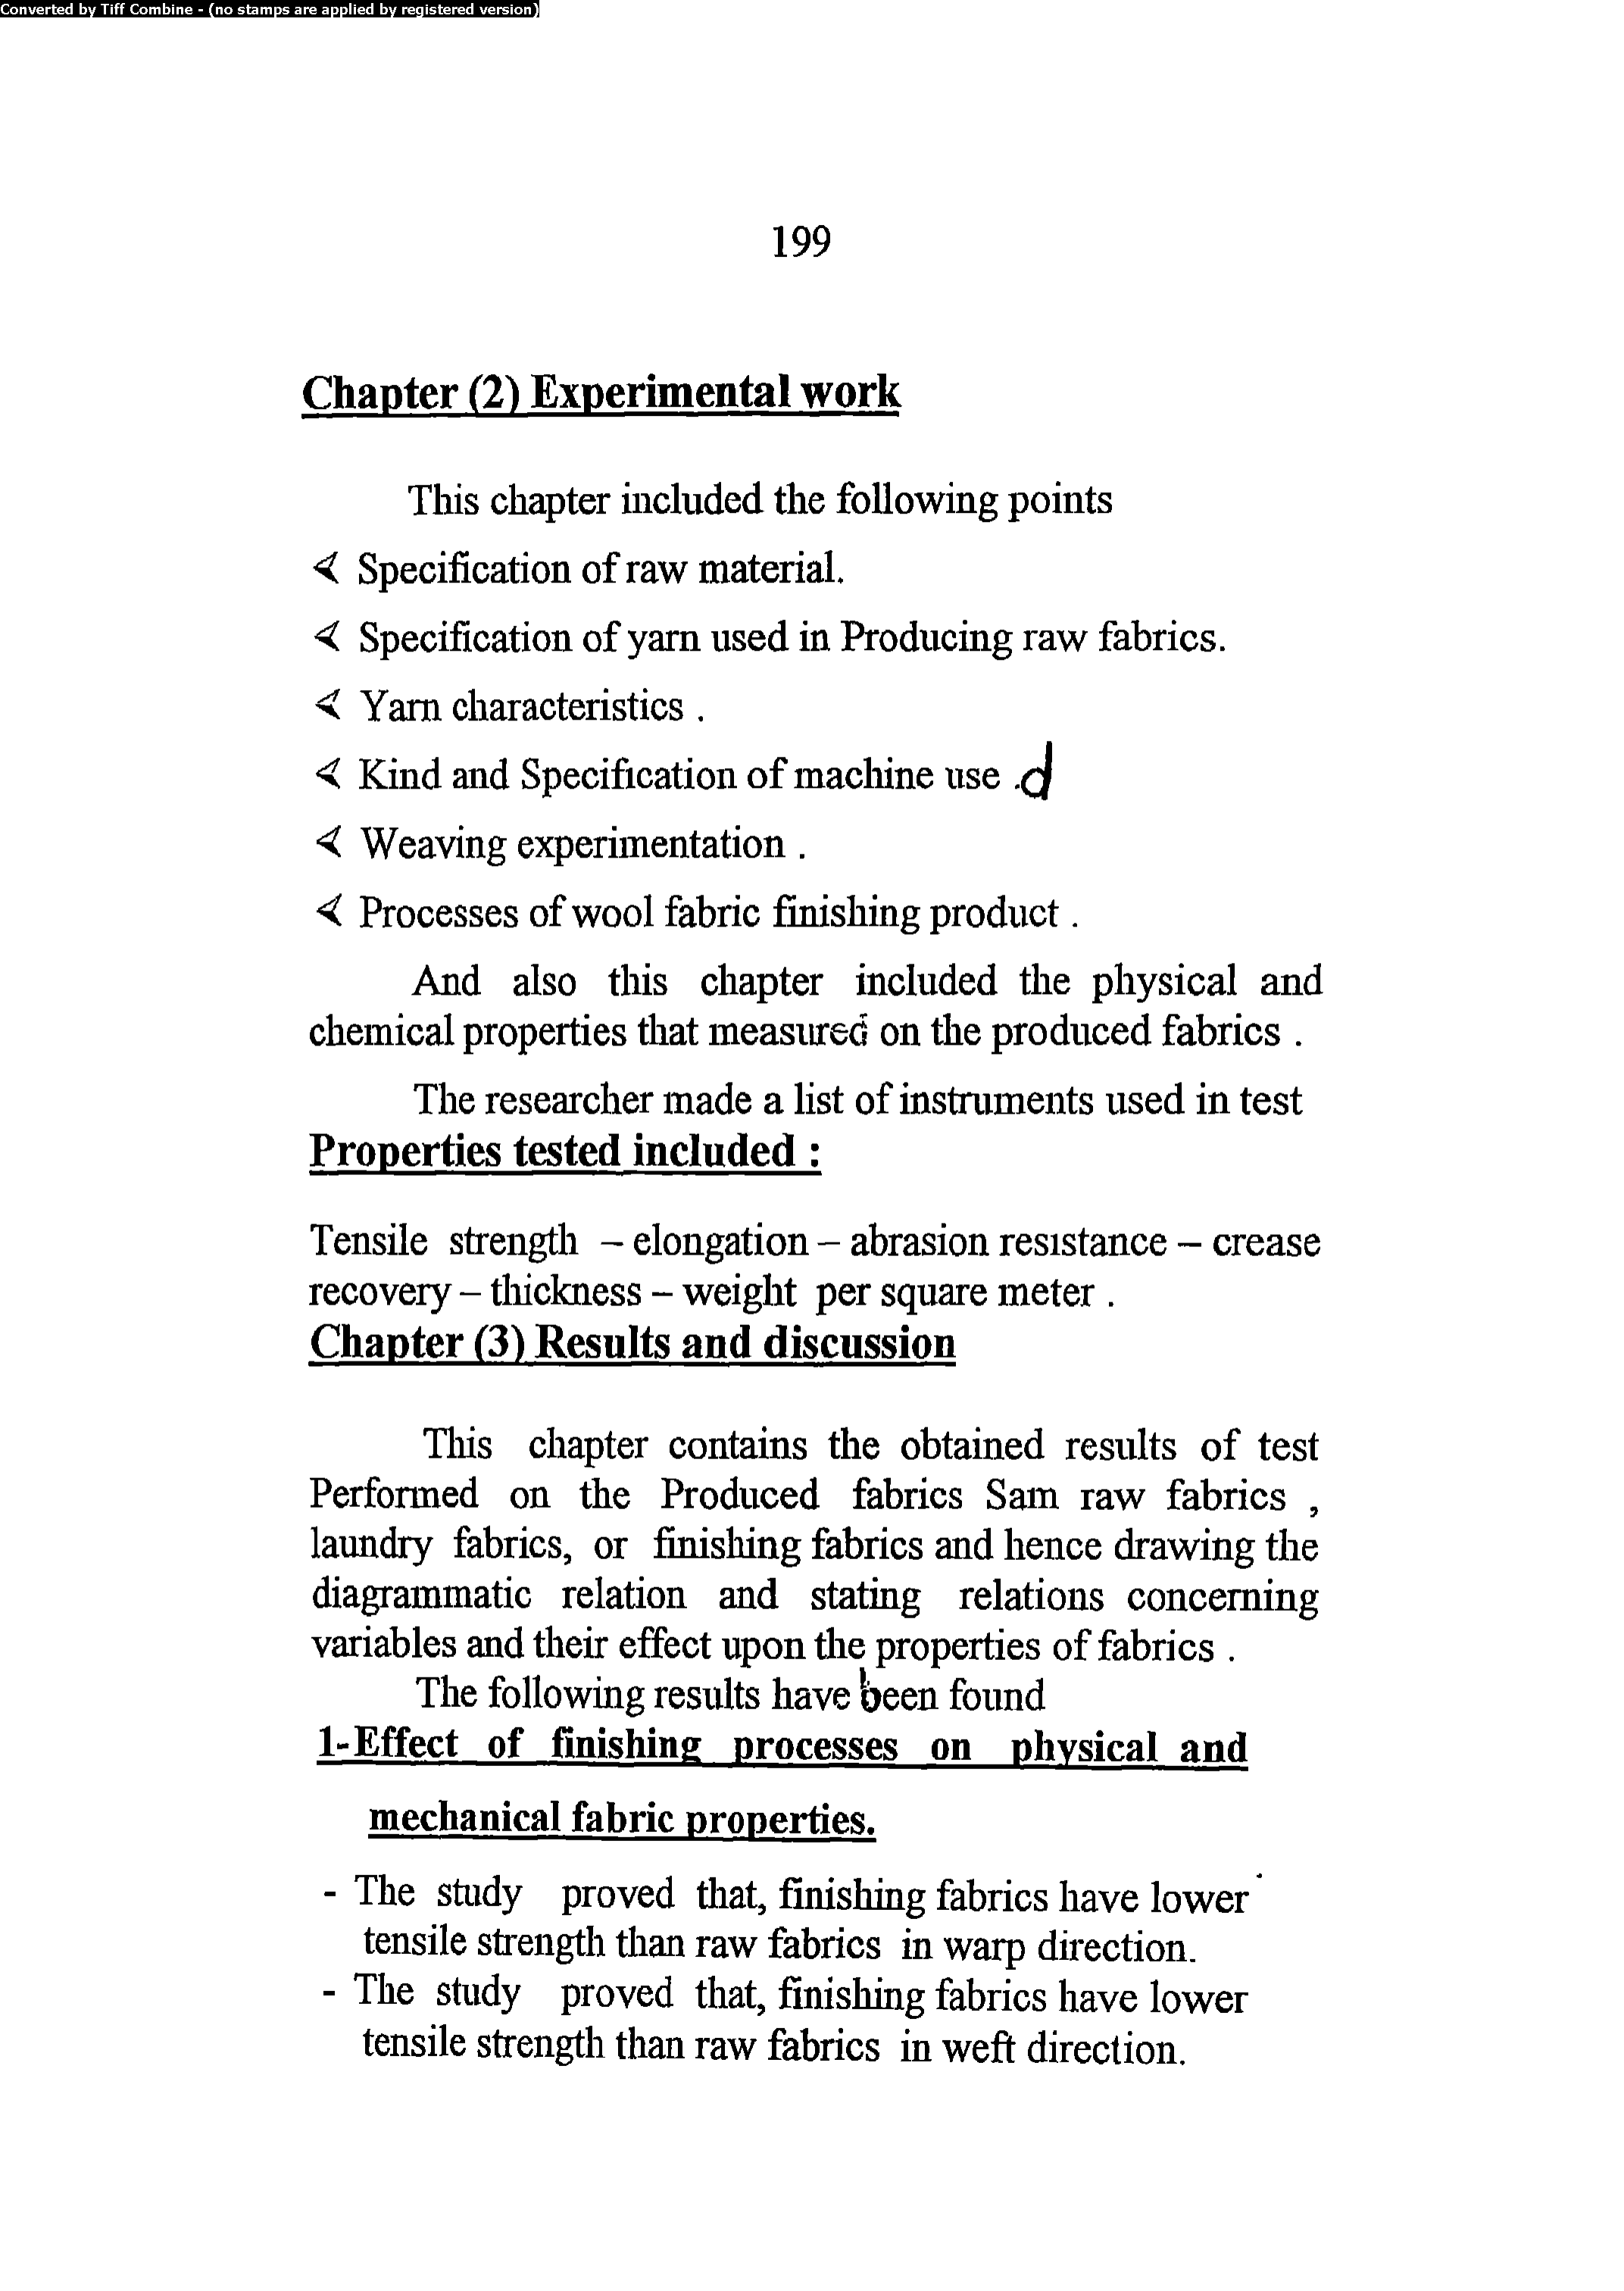 Converted by Tiff Combine - (no stamps are applied by registered version)
199
Chapter (2) Experimental work
This chapter included the following points
⮘ Specification of raw material.
⮘ Specification of yarn used in Producing raw fabrics.
⮘ Yarn characteristics .
⮘ Kind and Specification of machine use .d
⮘ Weaving experimentation .
⮘ Processes of wool fabric finishing product .
And also this chapter included the physical and
chemical properties that measured on the produced fabrics .
The researcher made a list of instruments used in test
Properties tested included :
Tensile strength – elongation – abrasion resistance – crease
recovery – thickness – weight per square meter .
Chapter (3) Results and discussion
This chapter contains the obtained results of test
Performed on the Produced fabrics Sam raw fabrics ,
laundry fabrics, or finishing fabrics and hence drawing the
diagrammatic relation and stating relations concerning
variables and their effect upon the properties of fabrics .
The following results have been found
1-Effect of finishing processes on physical and
mechanical fabric properties.
- The study proved that, finishing fabrics have lower
tensile strength than raw fabrics in warp direction.
- The study proved that, finishing fabrics have lower
tensile strength than raw fabrics in weft direction.